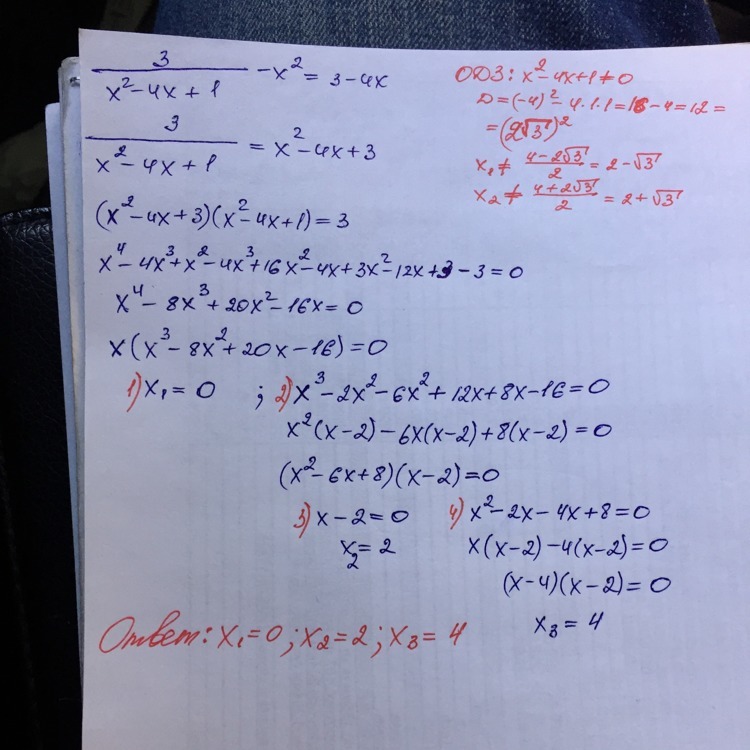 3/(x²-4x+1) - x² = 3-4x
3/(x²-4x+1) = x²-4x+3
(x²-4x+3)(x²-4x+1)=3
x⁴-4x³+x²-4x³+16x²-4x+3x²-12x+3-3=0
x⁴-8x³+20x²-16x=0
x(x³-8x²+20x-16)=0
1) x₁=0 ; 2) x³-2x²-6x²+12x+8x-16=0
x²(x-2)-6x(x-2)+8(x-2)=0
(x²-6x+8)(x-2)=0
3) x-2=0 4) x²-2x-4x+8=0
x₂=2 x(x-2)-4(x-2)=0
(x-4)(x-2)=0
x₃=4
Ответ: x₁=0; x₂=2; x₃=4
ОДЗ: x²-4x+1≠0
D=(-4)²-4·1·1=16-4=12=
=(2√3)²
x₁≠(4-2√3)/2=2-√3
x₂≠(4+2√3)/2=2+√3